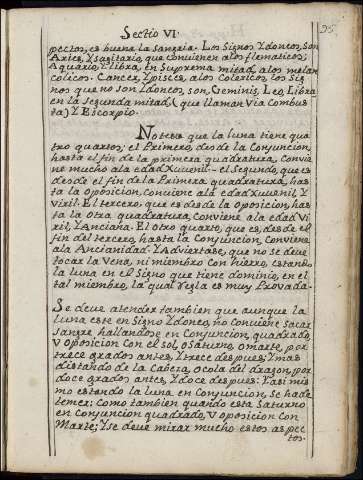 Sectio VI.
95.
pectos, es buena la sangria. Los Signos Ydoneos, Son
Aries, Y Sagitario, que convienen alos flematicos;
Aquario, Y Libra, en Suprema mitad, alos melan
colicos. Cancer, Y piscis, alos Colericos, los Sig
nos que no son Ydoneos, son, Geminis, Leo, Libra
en la Segunda mitad, (que llaman Via Combus
ta) Y Escorpio.
Notese que la luna tiene qua
tro quartos; el Primero, desde la Conjuncion,
hasta el fin de la primera quadratura, Convie
ne mucho ala edad Xuvenil - el Segundo, que es
desde el fin de la Primera quadratura, has
ta la oposicion, Conviene ala edad Xuvenil, Y
Viril. El tercero, que es desde la Oposicion, has
ta la Otra quadratura, Conviene ala edad Vi
ril, Y Anciana. El Otro quarto, que es, desde el
fin del tercero, hasta la Conjuncion, Conviene
ala Ancianidad. Y Adviertase, que no se deve
tocar la Vena, ni miembro Con hierro, estando
la luna en el Signo que tiene dominio, en el
tal miembro, la qual regla es muy Provada.
Se deve atender tambien que aunque la
luna este en Signo Ydoneo, no Conviene Sacar
Sangre, hallandose en Conjuncion, quadrado,
V oposicion Con el Sol, o Saturno, o marte, por
trece grados antes, Y trece despues; Y mas
distando de la Cabeza, o Cola del dragon, por
doce grados antes, Y doce despues: Y asi mis
mo estando la luna en Conjuncion, se hade
temer: Como tambien quando esta Saturno
en Conjuncion quadrado, V oposicion Con
Marte; Y se deve mirar mucho estos aspec
tos.